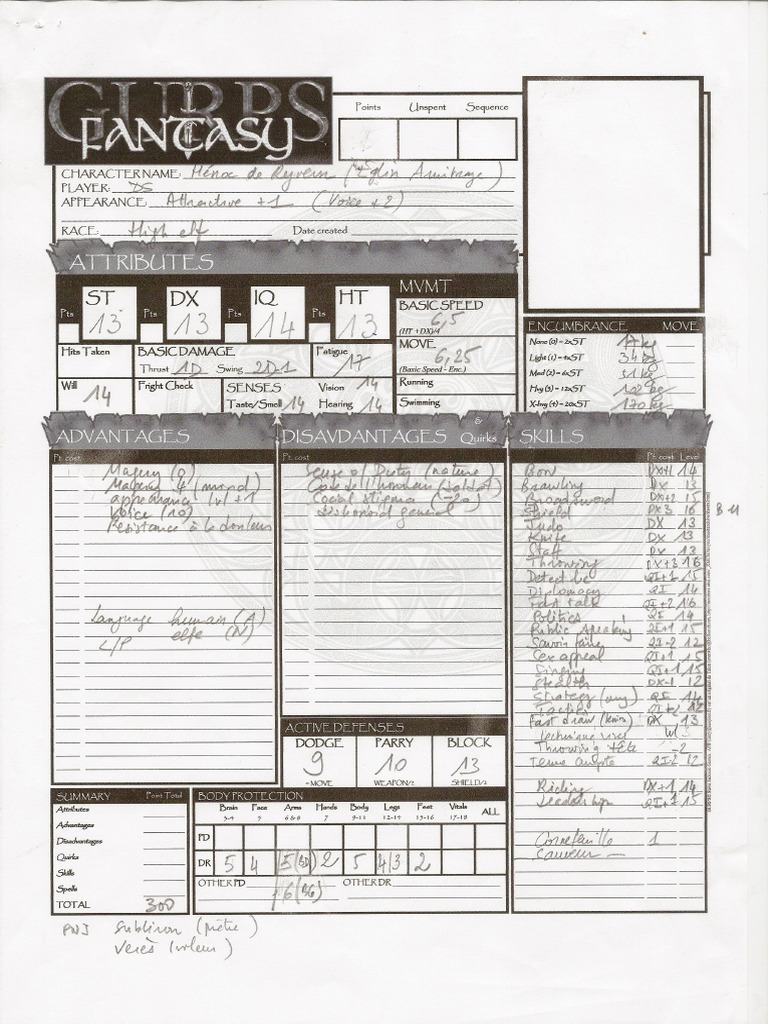 GURPS
FANTASY
Points Unspent Sequence
CHARACTER NAME: Ménoc de Ryvern (Eglin Armitage)
PLAYER: DS
APPEARANCE: Attractive +1 (Voice +2)
RACE: High elf Date created
ATTRIBUTES
Pts ST 13 Pts DX 13 Pts IQ 14 Pts HT 13
MVMT
BASIC SPEED 6,5
(HT + DX)/4
MOVE 6,25
(Basic Speed - Enc.)
Running
Swimming
Hits Taken
BASIC DAMAGE
Thrust 1D Swing 2D-1
Fatigue 17
Will 14
Fright Check
SENSES Vision 14
Taste/Smell 14 Hearing 14
ENCUMBRANCE MOVE
None (0) = 2xST 17kg
Light (1) = 4xST 34kg
Med (2) = 6xST 51kg
Hvy (3) = 12xST 102kg
X-hvy (4) = 20xST 170kg
ADVANTAGES
Pt. cost
Magery (0)
Magery 4 (mond)
appearance lvl +1
Voice (10)
Résistance à la douleur
Language human (A)
elfe (N)
L/P
DISAVDANTAGES & Quirks
Pt. cost
Sense of Duty (nature)
Code of Honour (soldat)
Social stigma (-20)
general
SKILLS
Pt. cost Level
Bow DX+1 14
Brawling DX 13
Broadsword DX+2 15
Shield DX 3 16 B 11
Judo DX 13
Knife DX 13
Staff DX 13
Throwing DX+3 16
Detect lie QI+1 15
Diplomacy QI 14
Fast talk QI+2 16
Politics QI 14
Public speaking QI+1 15
Savoir faire QI-2 12
Sex appeal QI+1 15
Singing QI+1 15
Stealth DX-1 12
Strategy (any) QI 14
Tactics QI+2
Fast draw (knife) DX 13
Technique
Throwing tête -2
QI-2 12
Riding DX+1 14
Leadership QI+1 15
1
ACTIVE DEFENSES
DODGE 9 =MOVE
PARRY 10 WEAPON/2
BLOCK 13 SHIELD/2
SUMMARY Point Total
Attributes
Advantages
Disadvantages
Quirks
Skills
Spells
TOTAL 300
BODY PROTECTION
Brain Face Arms Hands Body Legs Feet Vitals ALL
3-4 5 6 & 8 7 9-11 12-14 15-16 17-18
PD
DR 5 4 5(BD) 2 5 4/3 2
OTHER PD 6(BG) OTHER DR
PNJ Sublinon (prêtre)
Verès (voleur)